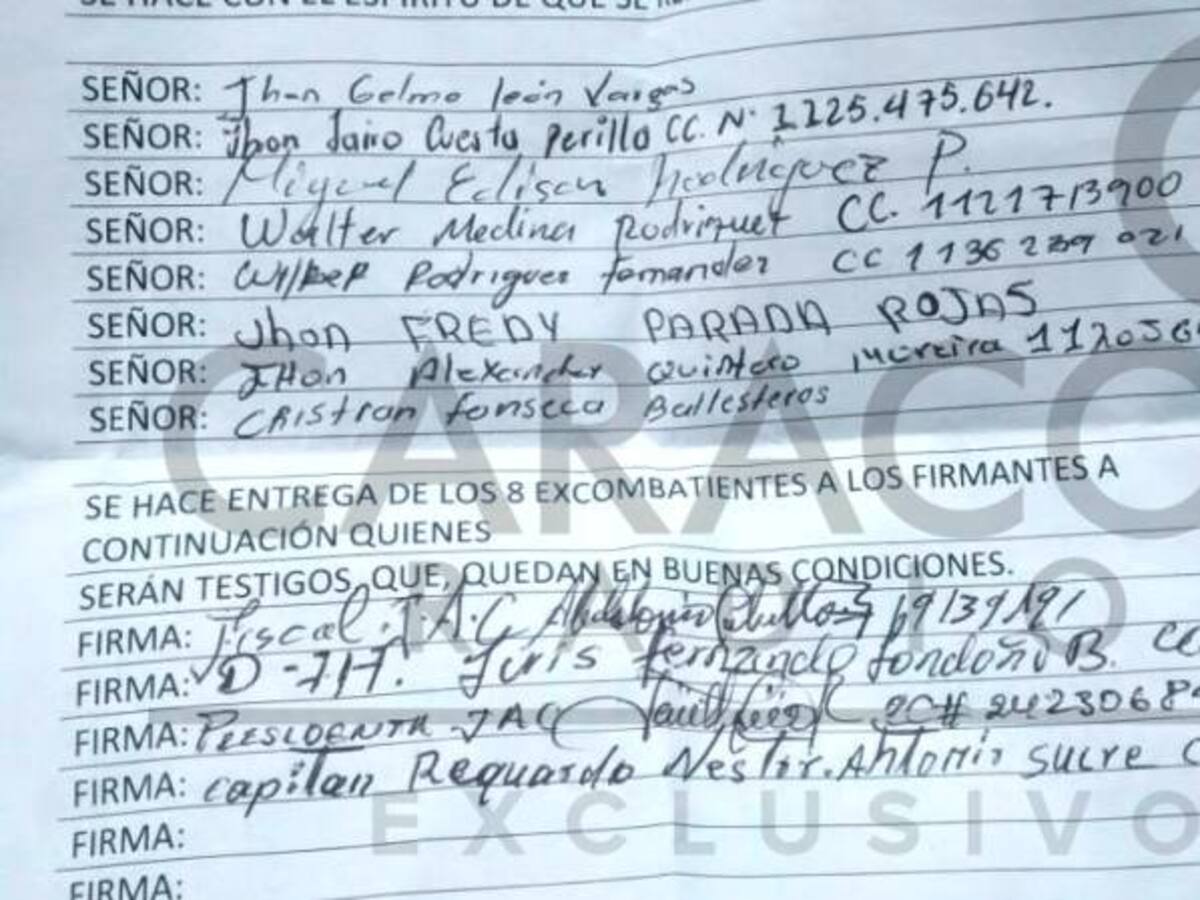 SE HACE CON EL ESPIRITU DE QUE SE
SEÑOR: Jhon Gelmo león Vargas
SEÑOR: Jhon Jairo Cuesta Perillo CC. Nº 1125.475.642.
SEÑOR: Miguel Edison Rodriguez P.
SEÑOR: Walter Medina Rodriguez CC. 1121713900
SEÑOR: Wilber Rodrigues fernandez CC 1136 289 021
SEÑOR: Jhon FREDY PARADA ROJAS
SEÑOR: JHon Alexander Quintero Moreira 112056
SEÑOR: CRistian fonseca Ballesteros
SE HACE ENTREGA DE LOS 8 EXCOMBATIENTES A LOS FIRMANTES A
CONTINUACIÓN QUIENES
SERÁN TESTIGOS, QUE, QUEDAN EN BUENAS CONDICIONES.
FIRMA: Fiscal J.A.C
FIRMA: fernando londoño B. CC
FIRMA: PRESIDENTA JAC 2423068
FIRMA: capitan Reguardo Nestor Antonio Sucre C
FIRMA:
FIRMA:
CARACO
RADIO
EXCLUSIVO